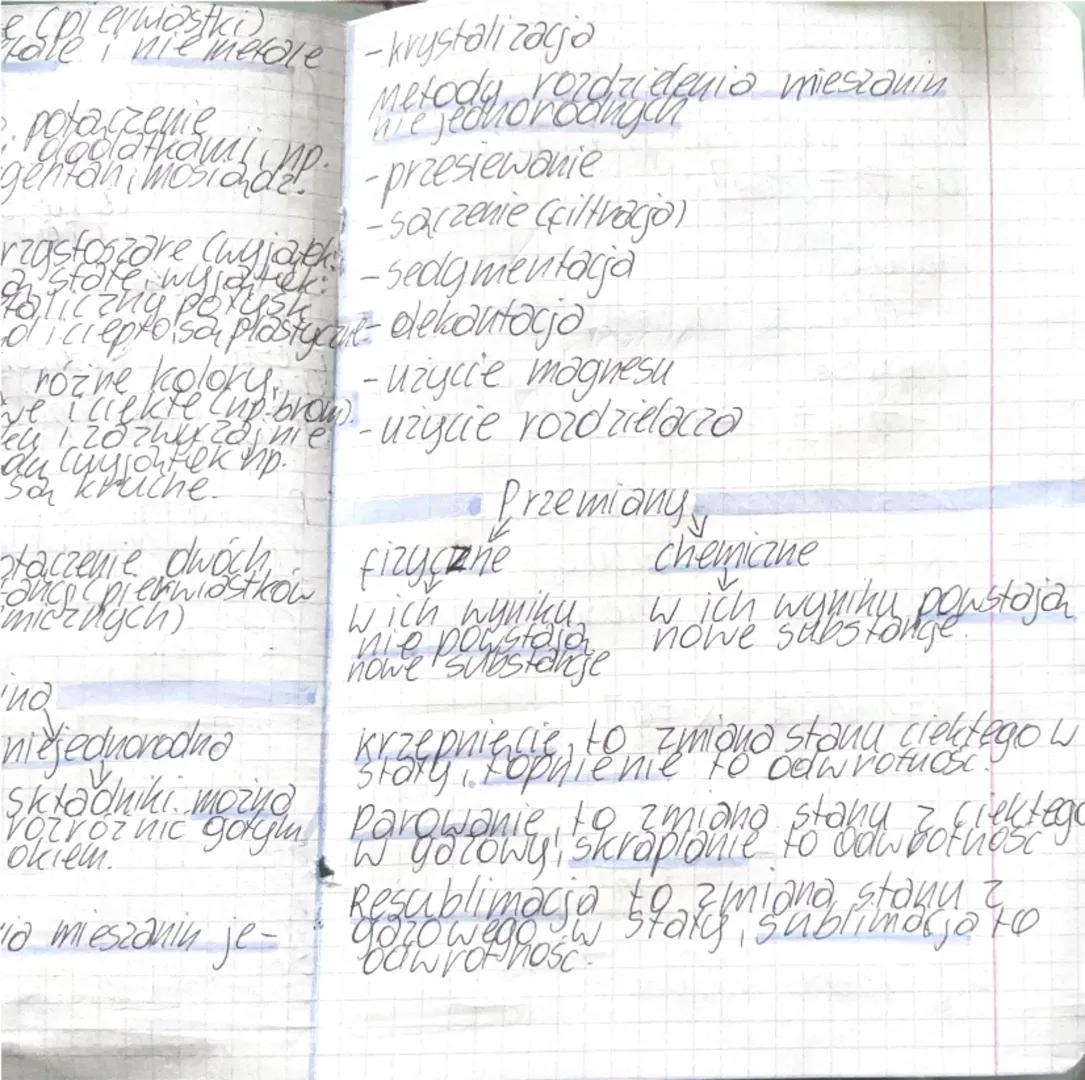 e (pierwiastki)
tale i niemetale
. połączenie
i dodatkami, np.
gentan, mosiądz.
rzystoszare (wyjątek:
a stałe, wyjątek:
taliczny połysk
i ciepło, są plastyczne
różne kolory,
we i ciekłe (np. brom).
i zazwyczaj nie
(wyjątek np.
są kruche.
ołączenie dwóch
ancji (pierwiastków
micznych)
na
niejednorodna
składniki można
rozróżnić gołym
okiem.
ia mieszanin je-
- krystalizacja
metody rozdzielenia mieszanin
niejednorodnych
- przesiewanie
- sączenie (filtracja)
- sedymentacja
- dekantacja
- użycie magnesu
- użycie rozdzielacza
Przemiany
fizyczne chemiczne
w ich wyniku w ich wyniku powstają
nie powstają nowe substancje.
nowe substancje
krzepnięcie, to zmiana stanu ciekłego w
stały, topnienie to odwrotność.
parowanie, to zmiana stanu z ciekłego
w gazowy, skraplanie to odwrotność
Resublimacja to zmiana stanu z
gazowego w stały, sublimacja to
odwrotność.